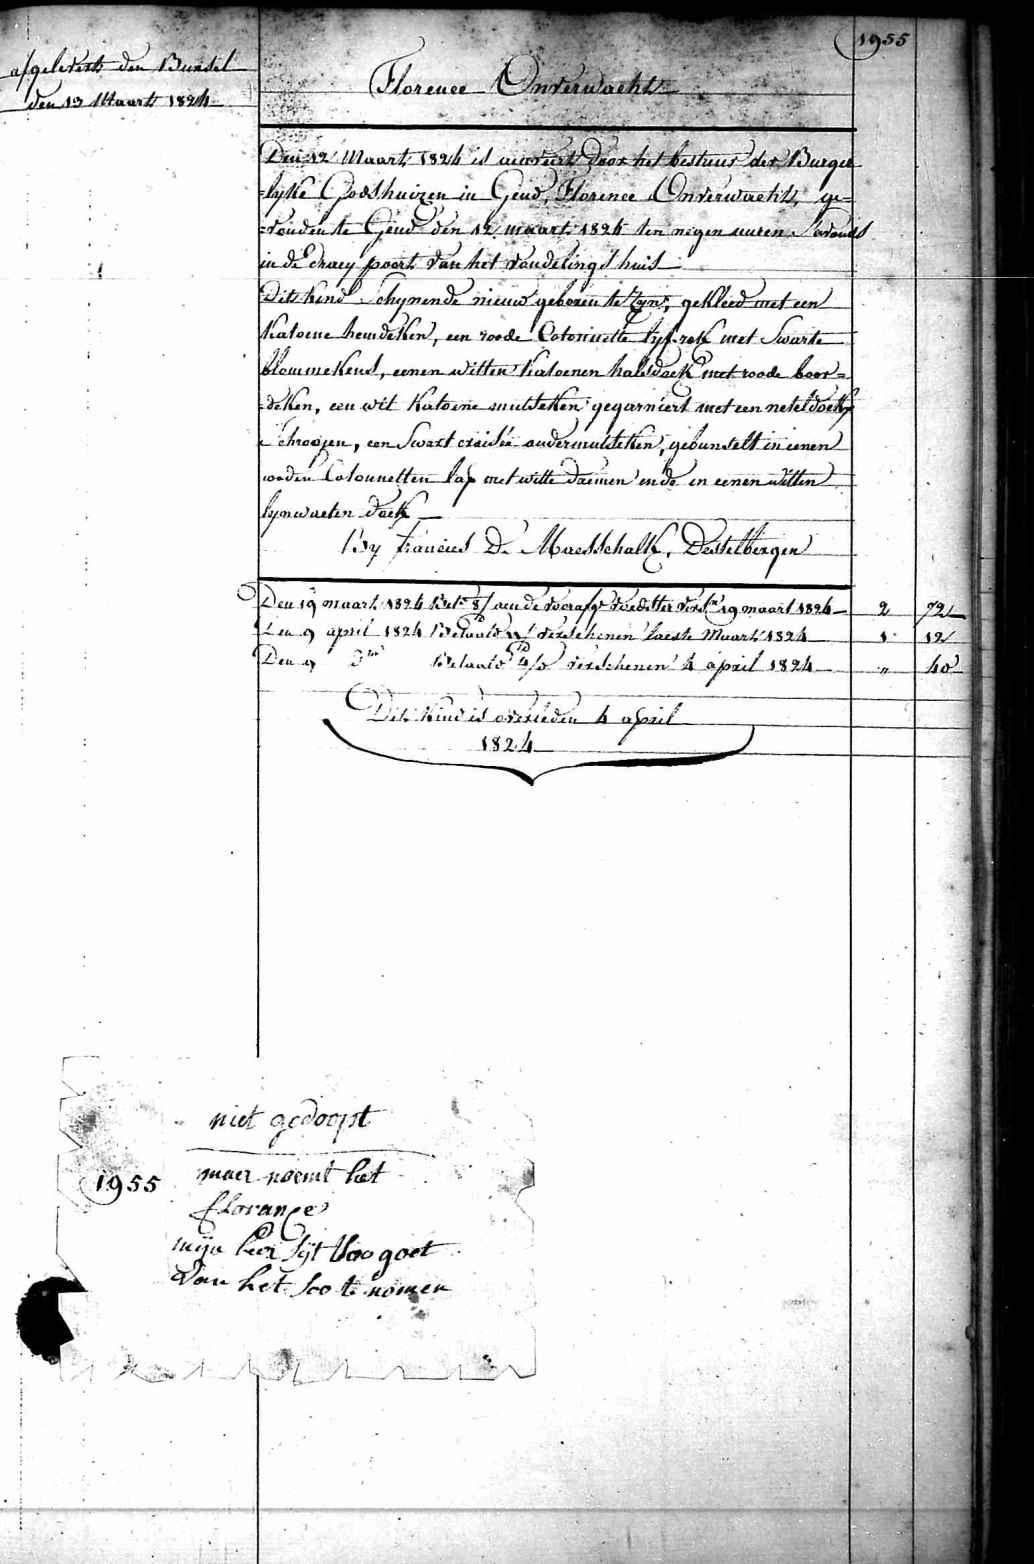 1955
afgelevert den Bundel
den 13 Maart 1824
Florence Onverwacht
Den 12 Maart 1824 is aenveert door het bestuur der Burger
=lyke Godshuizen in Gend, Florence Onverwacht, ge=
=vonden te Gend den 12 maart 1824 ten negen uuren S'avonds
in de Draey poort van het vondelings huis
Dit Kind Schynende nieuw geboren te zyn, gekleed met een
Katoene hemdeken, een roode Cotonnette lyf rok met Swarte
blommekens, eenen witten Katoenen halsdoek met roode boor=
=deken, een wit Katoene mutseken gegarniert met een neteldoekse
Schroojen, een Swart croisée ondermutseken, gebunselt in eenen
rooden Cotonnetten lap met witte daemen ende in eenen witten
lynwaeten doek
By Francies De Maesschalk, Destelbergen
Den 19 maart 1824 Bet. aen de voorafg. voedster versch. 19 maart 1824 2 72
Den 9 april 1824 Betaald verschenen laeste Maart 1824 1 12
Den 9 Do Betaald verschenen 4 april 1824 " 40
Dit Kind is overleden 4 april
1824
niet gedoopt
1955 maer noemt het
florance
mijn heer sijt soo goet
van het soo te nomen